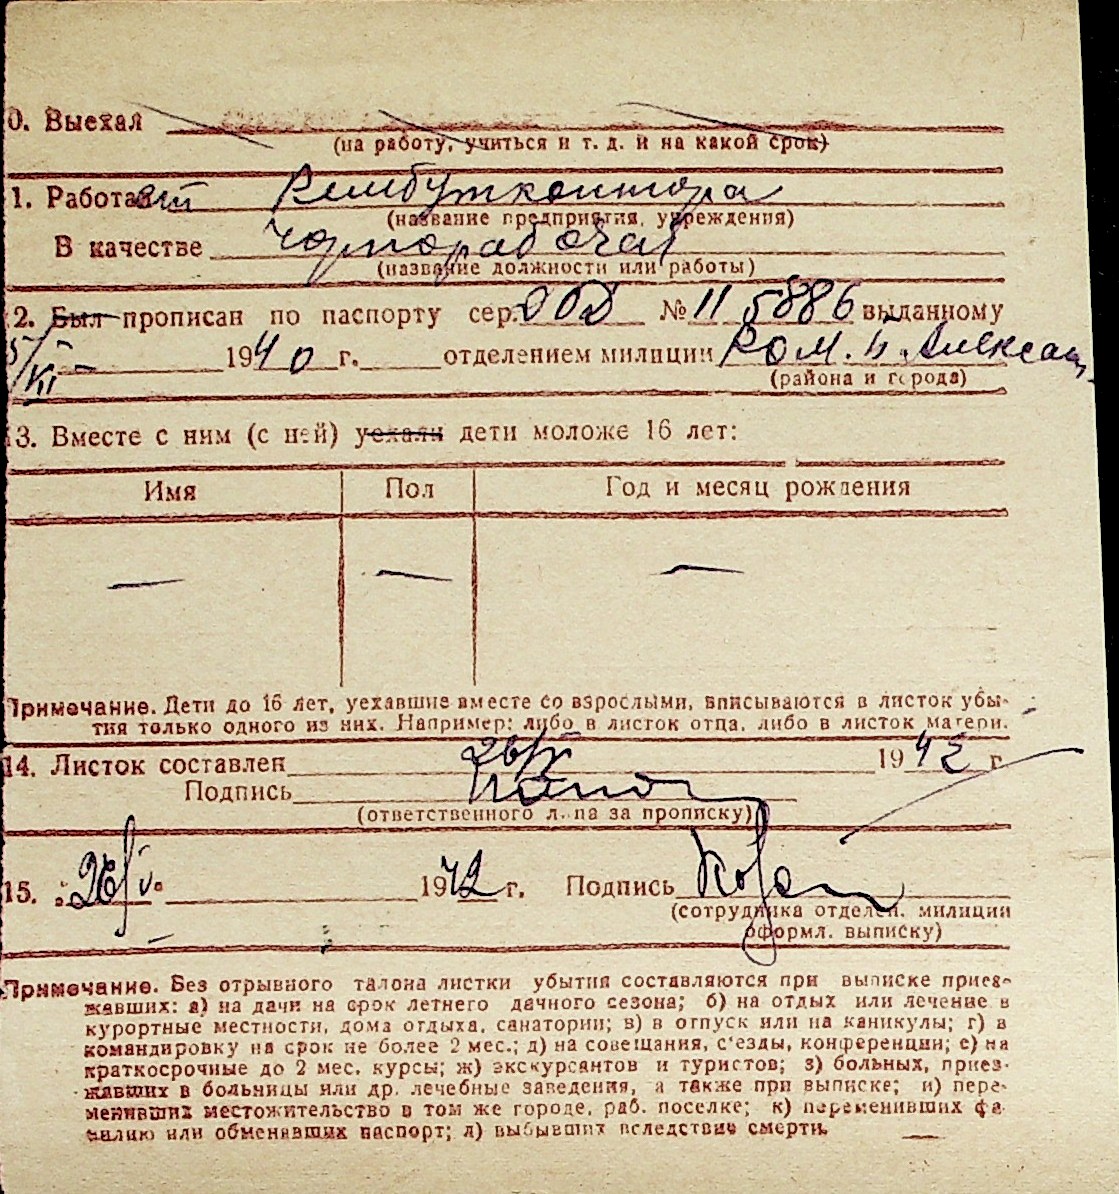 0. Выехал
(на работу, учиться и т. д. и на какой срок)
1. Работает Рембутконтора
(название предприятия, учреждения)
В качестве Чернорабочая
(название должности или работы)
2. Был прописан по паспорту сер. №11 5886 выданному
5/XI- 1940 г. отделением милиции РОМ. Алексан.
(района и города)
13. Вместе с ним (с ней) уехали дети моложе 16 лет:
Имя Пол Год и месяц рождения
— — —
Примечание. Дети до 16 лет, уехавшие вместе со взрослыми, вписываются в листок убы-
тия только одного из них. Например: либо в листок отца, либо в листок матери.
14. Листок составлен 26/V 1942 г
Подпись
(ответственного лица за прописку)
15. 26/V 1942 г. Подпись
(сотрудника отделен. милиции
оформл. выписку)
Примечание. Без отрывного талона листки убытия составляются при выписке приез-
жавших: а) на дачи на срок летнего дачного сезона; б) на отдых или лечение в
курортные местности, дома отдыха, санатории; в) в отпуск или на каникулы; г) в
командировку на срок не более 2 мес.; д) на совещания, с'езды, конференции; е) на
краткосрочные до 2 мес. курсы; ж) экскурсантов и туристов; з) больных, приез-
жавших в больницы или др. лечебные заведения, а также при выписке; и) пере-
менивших местожительство в том же городе, раб. поселке; к) переменивших фа-
милию или обменявших паспорт; л) выбывших вследствие смерти.